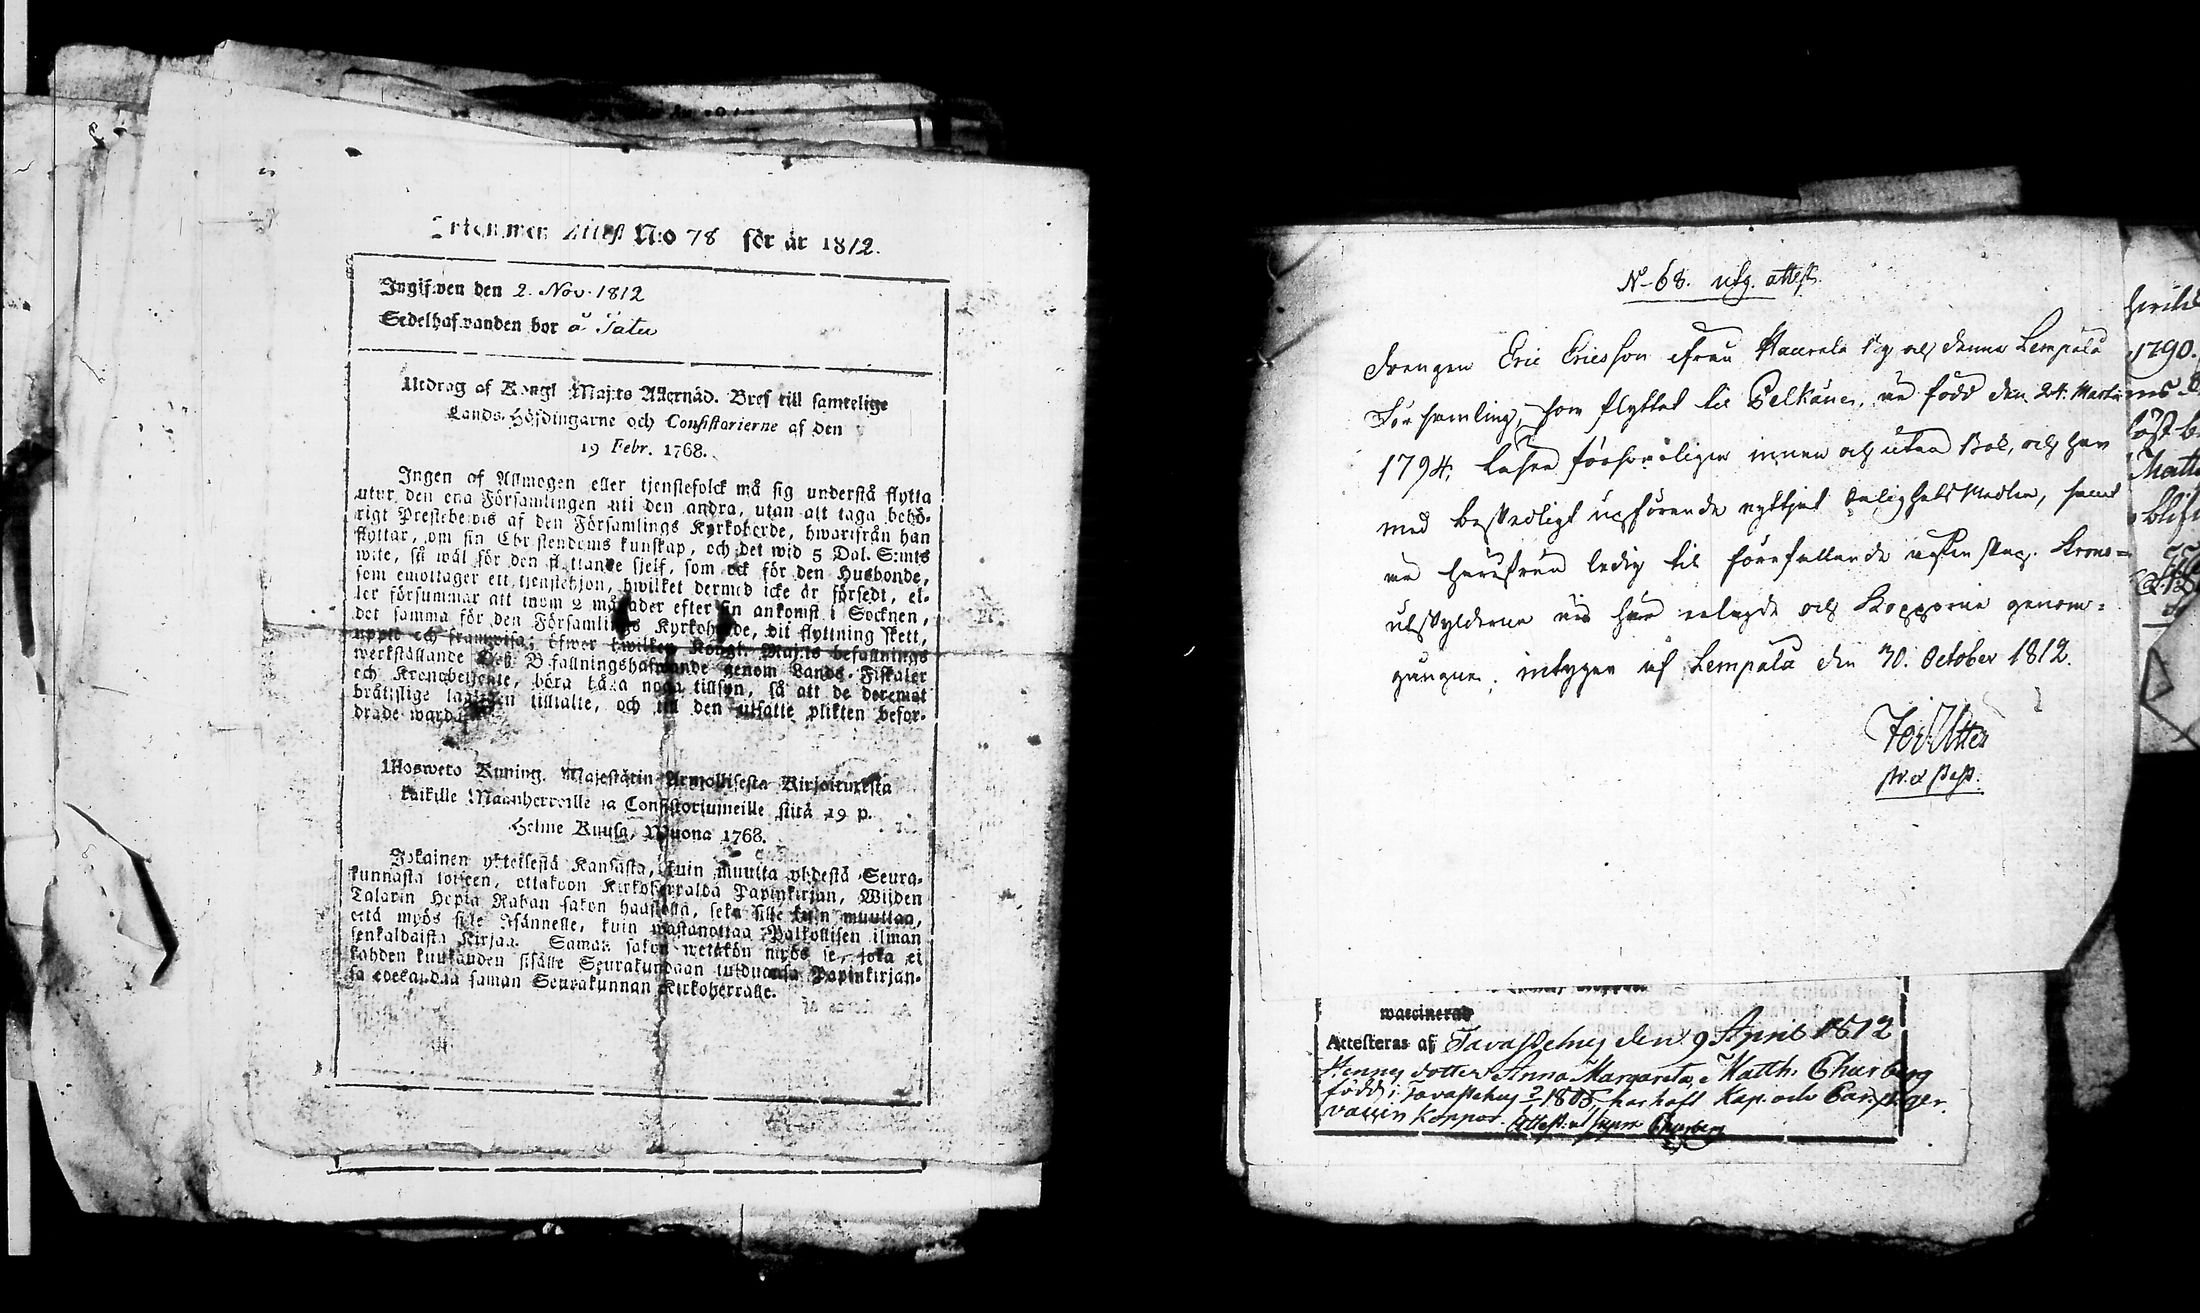 Inkommen Attest N:o 78 för år 1812.
Ingifwen den 2. Nov. 1812
Sedelhafwanden bor å Tatu
Utdrag af Kongl. Maj:ts Allernåd. Bref till samtelige
Lands-Höfdingarne och Consistorierne af den
19 Febr. 1768.
Ingen af Allmogen eller tjenstefolck må sig understå flytta
utur den ena Församlingen uti den andra, utan att taga behö-
rigt Prestebewis af den Församlings Kyrkoherde, hwarifrån han
flyttar, om sin Christendoms kunskap, och det wid 5 Dal. S:mts
wite, så wäl för den flyttande sjelf, som ock för den Husbonde,
som emottager ett tjenstehjon, hwilket dermed icke är försedt, el-
ler försummar att inom 2 månader efter sin ankomst i Socknen,
det samma för den Församlings Kyrkoherde, dit flyttning skett,
uppte och framwisa; öfwer hwilken Kongl. Maj:ts befallnings
werkställande Des Befallningshafwande genom Lands-Fiskaler
och Kronobetjente, böra hafa noga tillsyn, så att de deremot
bråtslige lagligen tilltalte, och till den utsatte plikten befor-
drade warda.
Ulosweto Kuning. Majestätin Armollisesta Kirjoituxesta
kaikille Maanherroille ja Consistoriumeille siitä 19 p.
Helme Kuusa, Wuona 1768.
Jokainen yhteisestä Kansasta, kuin muutta yhdestä Seura-
kunnasta toiseen, ottakoon Kirkoherralda Papinkirjan, Wijden
Talarin Hopia Rahan sakon haastolla, sekä sille kuin muuttaa,
että myös sille Isännelle, kuin wastanottaa Palkollisen ilman
senkaldaista Kirjaa. Saman sakon wetäkön myös se, joka ei
kahden kuukauden sisälle Seurakundaan tulduansa Papinkirjan-
sa edesandaa saman Seurakunnan Kirkoherralle.
N 68. utg. attest.
Drengen Eric Ericsson ifrån Haurala by och denna Lempälä
Församling, som flyttat til Pelkäne, är född den 24. Martii
1794, läser försvarligen innan och utan Bok, och har
med beskedligt uppförande nyttjat Salighets Medlen, samt
är härifrån ledig til förefallande ägtenskap. Krono-
utskylderna äro här erlagde och Kopporne genom-
gångne; intygar af Lempälä den 30. October 1812.
waccinerad
Attesteras af Tavastehus den 9 April 1812
Hennes dotter Anna Margareta, Matth. Churberg
född i Tavastehus 1805, har haft
vaccin Koppor. Attest. ut supra Churberg
1790.